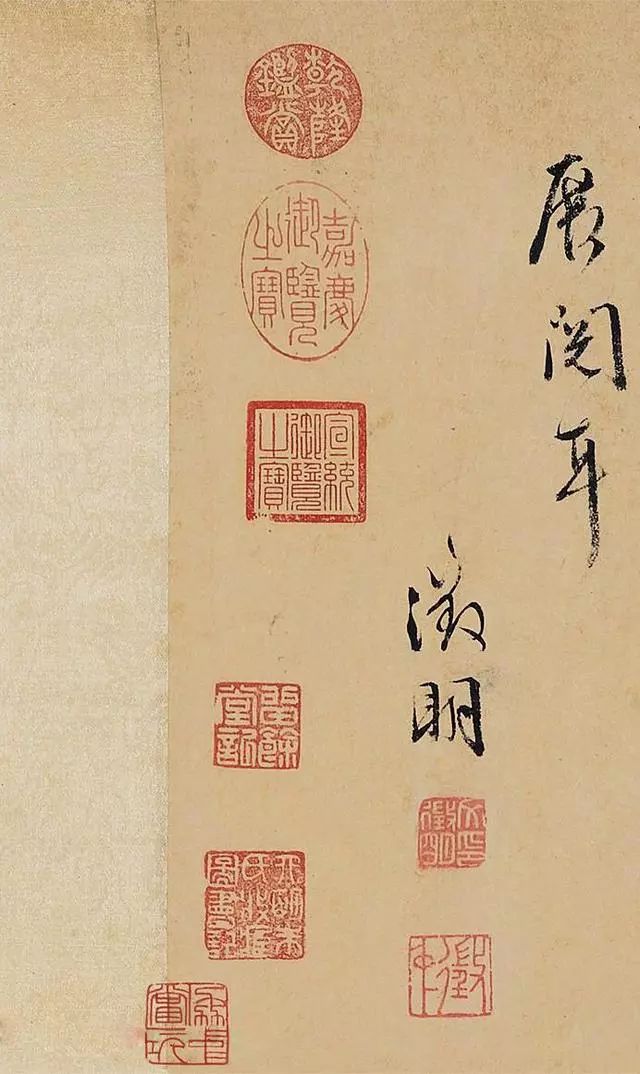 展閱耳
徵明
文徵明印
乾隆鑑賞
嘉慶御覽之寶
宣統御覽之寶